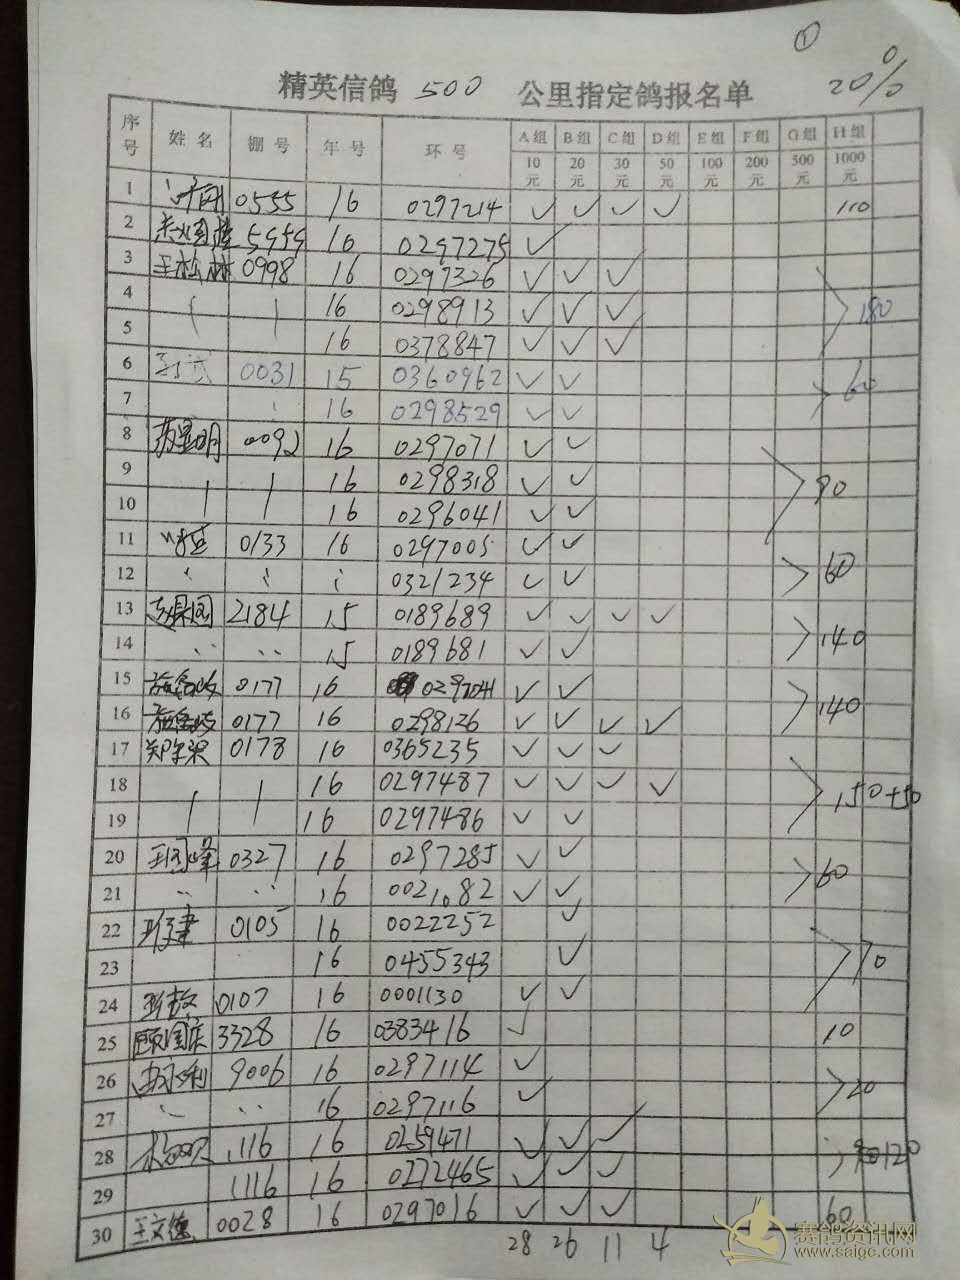 ①
精英信鸽 500 公里指定鸽报名单 20%
序号 姓名 棚号 年号 环号 A组 B组 C组 D组 E组 F组 G组 H组
10元 20元 30元 50元 100元 200元 500元 1000元
1 0555 16 0297214 ✓ ✓ ✓ ✓ 110
2 16 0297275 ✓
3 王松林 0998 16 0297326 ✓ ✓ ✓
4 16 0298913 ✓ ✓ ✓ 180
5 16 0378847 ✓ ✓ ✓
6 0031 15 0360962 ✓ ✓ 60
7 16 0298529 ✓ ✓
8 0092 16 0297071 ✓ ✓
9 16 0298318 ✓ ✓ 90
10 16 0296041 ✓ ✓
11 0133 16 0297005 ✓ ✓ 60
12 0321234 ✓ ✓
13 2184 15 0189689 ✓ ✓ ✓ ✓ 140
14 15 0189681 ✓ ✓
15 0177 16 0297041 ✓ ✓ 140
16 0177 16 0298126 ✓ ✓ ✓ ✓
17 0178 16 0365235 ✓ ✓ ✓
18 16 0297487 ✓ ✓ ✓ ✓ 150+50
19 16 0297486 ✓ ✓
20 王国峰 0327 16 0297285 ✓ ✓ 60
21 16 0021082 ✓ ✓
22 0105 16 0022252 ✓
23 16 0455343 ✓ 70
24 0107 16 0001130 ✓ ✓
25 顾国庆 3328 16 0383416 ✓ 10
26 9006 16 0297114 ✓ 20
27 16 0297116 ✓
28 1116 16 0259471 ✓ ✓ ✓ 120
29 1116 16 0272465 ✓ ✓ ✓
30 王文德 0028 16 0297016 ✓ ✓ ✓ 60
28 26 11 4
赛鸽资讯网
www.saigc.com